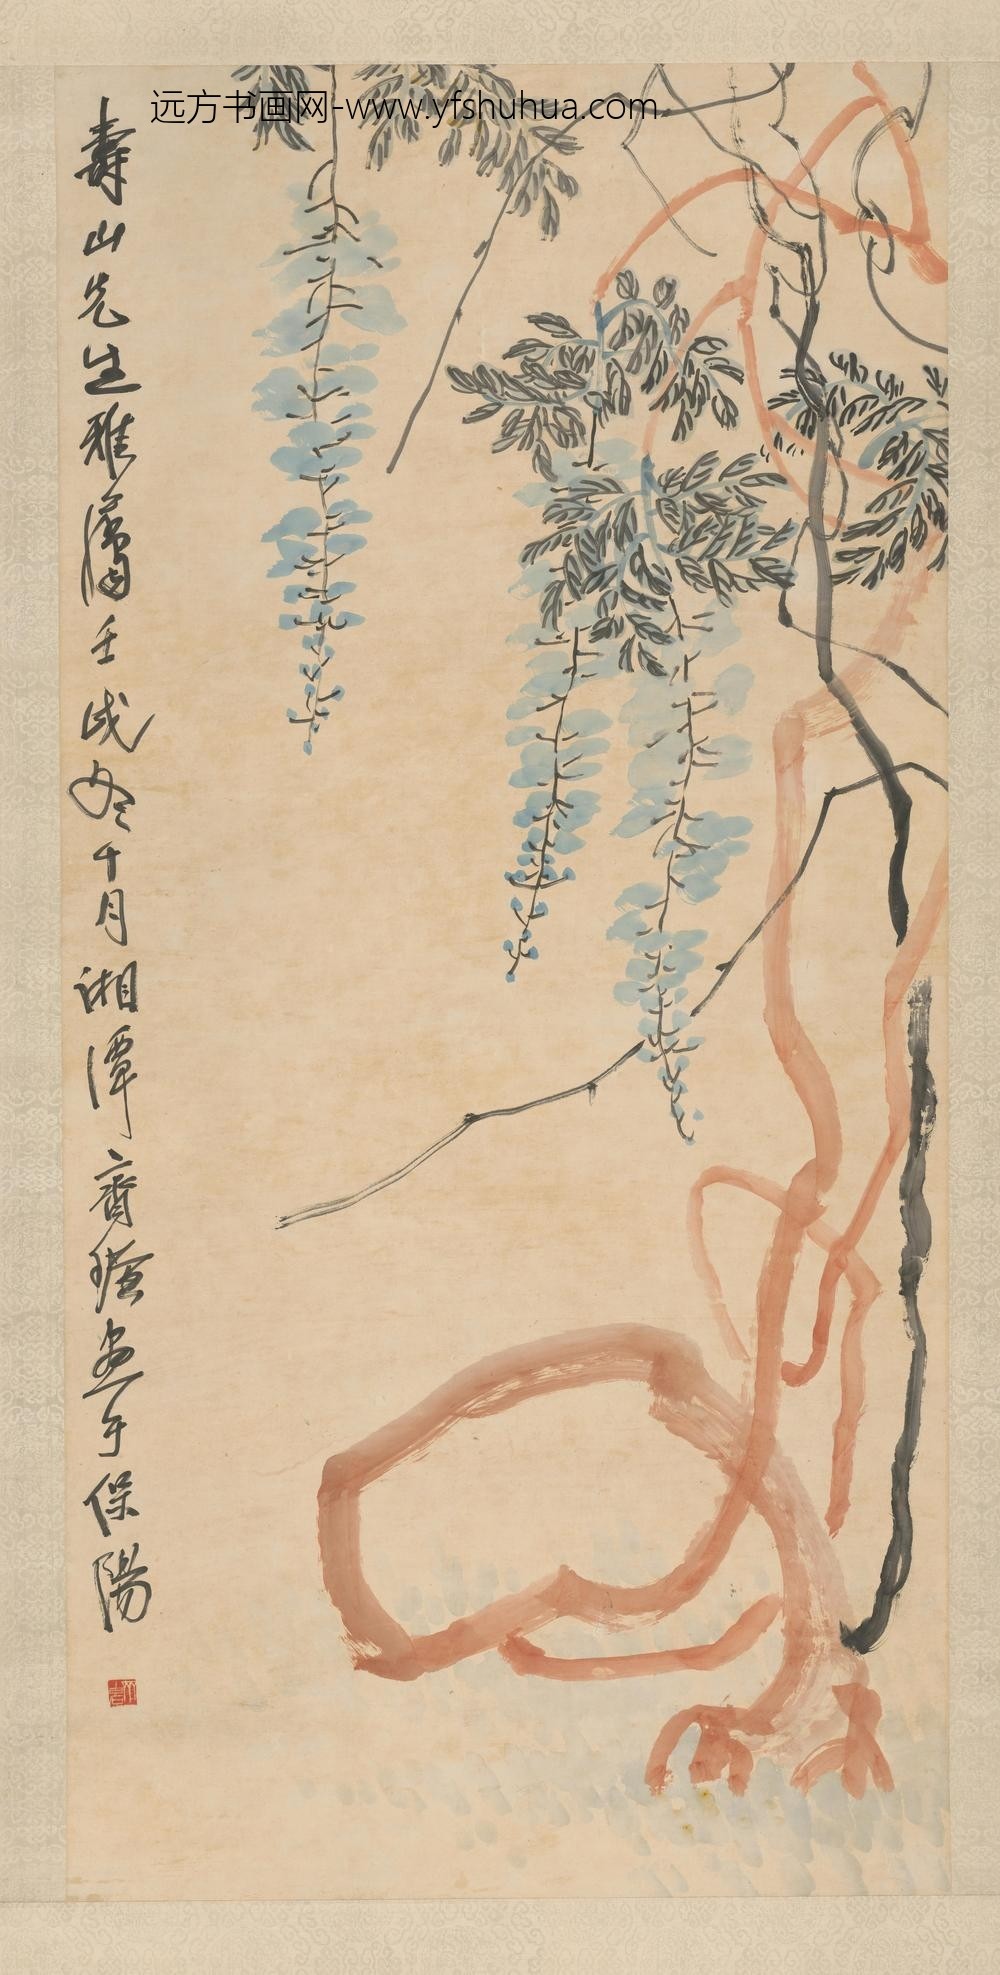 远方书画网-www.yfshuhua.com
壽山先生雅屬壬戌冬十月湘潭齊璜畫于保陽